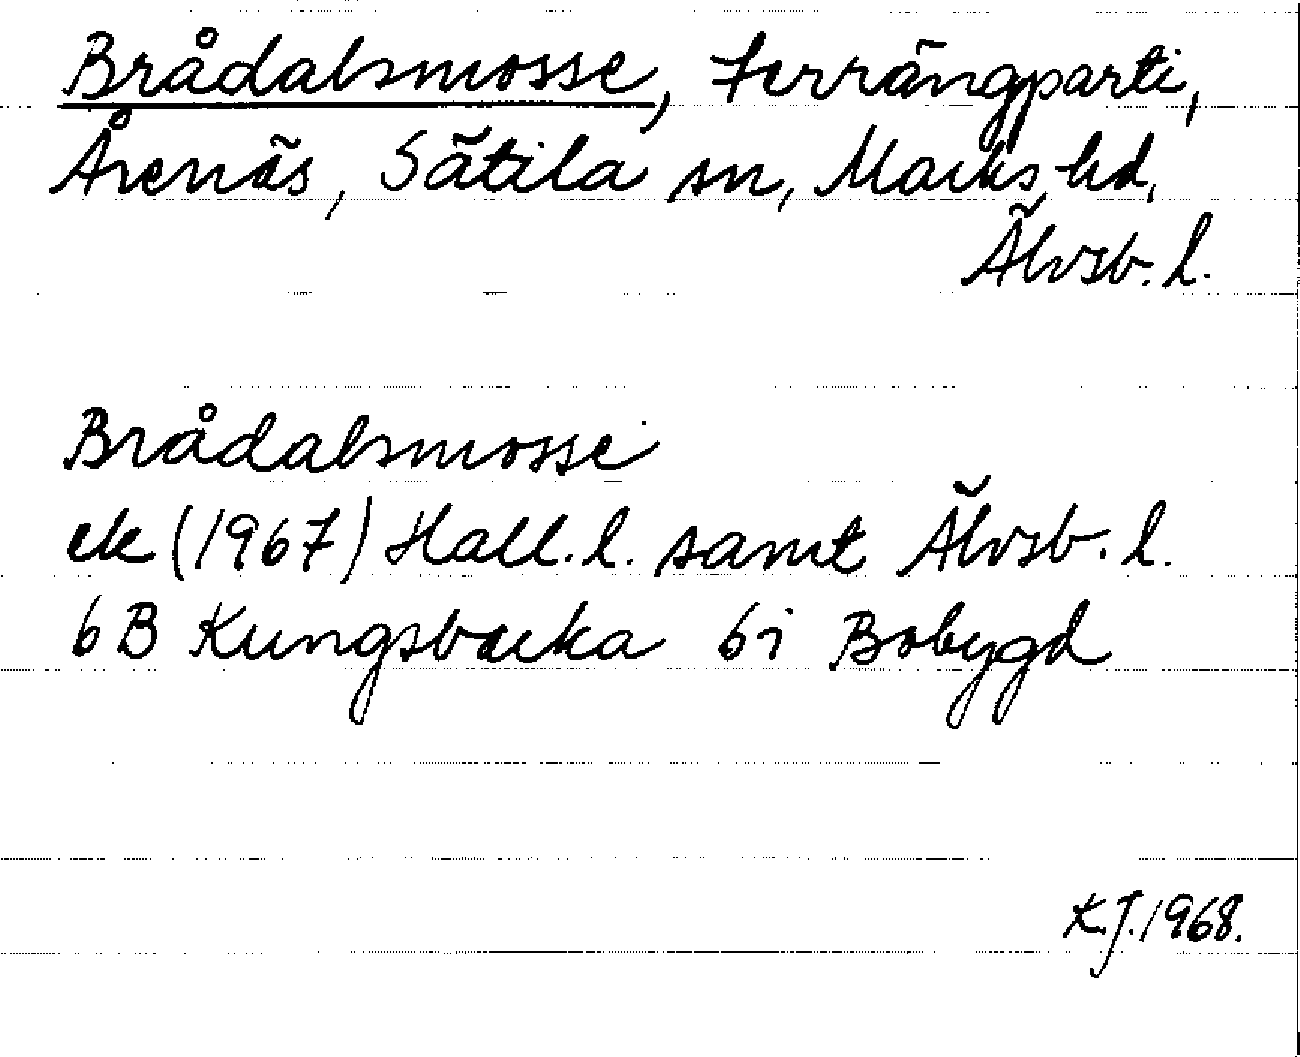 Brådalsmosse, Terrängparti,
Årenäs, Sätila sn, Marks hd,
Älvsb. l.
Brådalsmosse
ek (1967) Hall. l. samt Älvsb. l.
6 B Kungsbacka 6i Bobygd
K.J. 1968.